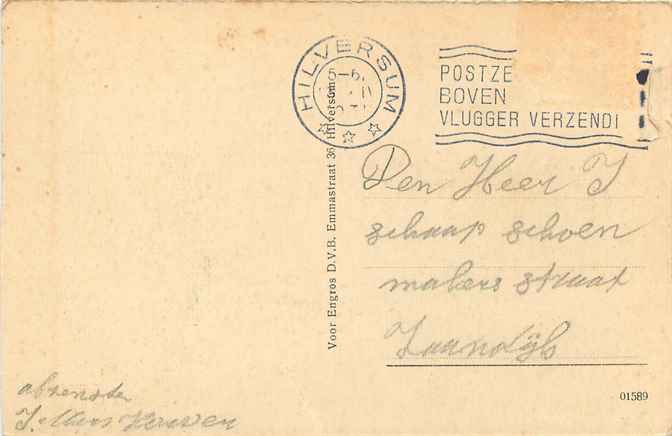 HILVERSUM
5-6.
POSTZE
BOVEN
VLUGGER VERZENDI
Voor Engros D.V.B. Emmastraat 36, Hilversum
Den Heer J
schaap schoen
makers straat
Zaandijk
afzender
J.
01589